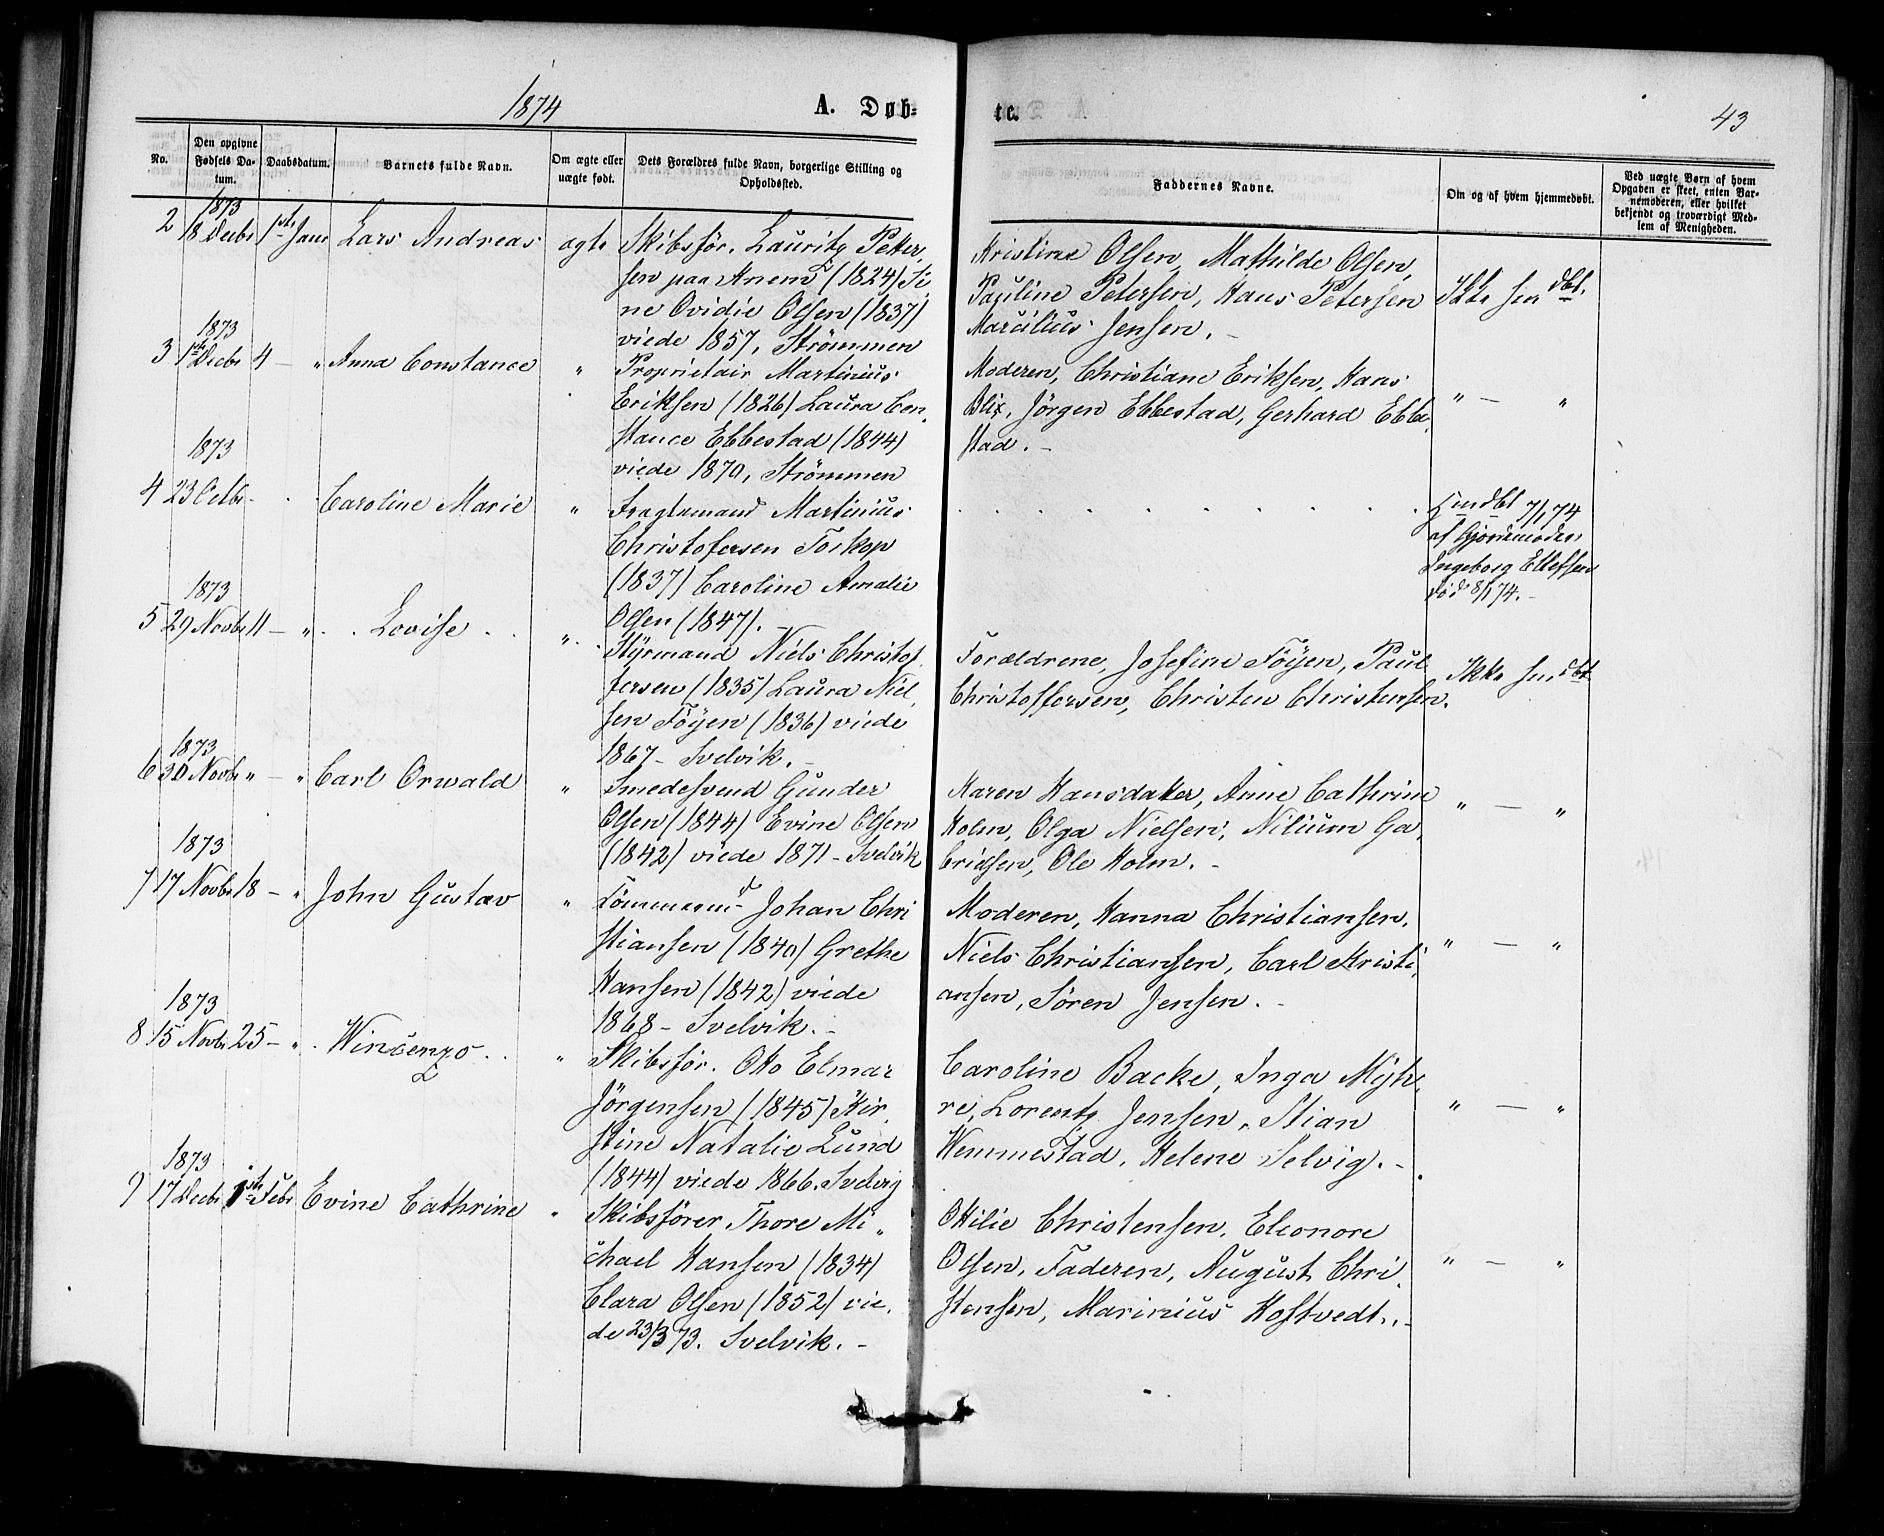 1874
A. Døb-
te.
43
No.
Den opgivne Fødsels Datum.
Daabsdatum.
Barnets fulde Navn.
Om ægte eller uægte født.
Dets Forældres fulde Navn, borgerlige Stilling og Opholdssted.
Faddernes Navne.
Om og af hvem hjemmedøbt.
Ved uægte Børn af hvem Opgaven er skeet, enten Barnemoderen, eller hvilket bekjendt og troværdigt Medlem af Menigheden.
1873
2 18 Decbr 1ste Janr Lars Andreas ægte Skibsför. Lauritz Peter,
sen paa Anem (1824) Si,
ne Ovidie Olsen (1837)
viede 1857, Strömmen
Kristine Olsen, Mathilde Olsen,
Pauline Petersen, Hans Petersen
Marcilius Jensen. -
Ikke hmdbt.
1873
3 1ste Decbr 4 - " Anna Constance " Proprietair Martinius
Eriksen (1826) Laura Con,
stance Ebbestad (1844)
viede 1870, Strömmen
Moderen, Christiane Eriksen, Hans
Blix, Jörgen Ebbestad, Gerhard Ebbe,
stad. -
" - "
1873
4 23 Octbr - Caroline Marie " Fragtemand Martinius
Christofersen Torkop
(1837) Caroline Amalie
Olsen (1847).
Hmdbt 7/1 74
af Gjordemoder
Ingeborg Ellefsen
död 8/1 74. -
1873
5 29 Novbr 11 - " Lovise " Styrmand Niels Christof,
fersen (1835) Laura Niel,
sen Föyen (1836) viede
1867 - Svelvik. -
Forældrene, Josefine Föyen, Paul
Christoffersen, Christen Christensen.
Ikke hmdbt
1873
6 30 Novbr " - " Carl Orwald " Smedesvend Gunder
Olsen (1844) Evine Olsen
(1842) viede 1871 - Svelvik
Karen Hansdatter, Anne Cathrine
Holm, Olga Nielsen, Nilium Ga,
brielsen, Ole Holm. -
" - "
1873
7 17 Novbr 18 - " John Gustav " Tömmermd Johan Chri
stiansen (1840) Grethe
Hansen (1842) viede
1868 - Svelvik. -
Moderen, Hanna Christiansen,
Niels Christiansen, Carl Kristi,
ansen, Sören Jensen. -
" - "
1873
8 15 Novbr 25 - " Wincenzo " Skibsför. Otto Elmar
Jörgensen (1845) Kir,
stine Natalie Lund
(1844) viede 1866. Svelvig
Caroline Backe, Inga Myh,
re, Lorentz Jensen, Stian
Wemmestad, Helene Selvig. -
" - "
1873
9 17 Decbr 1ste Febr Evine Cathrine " Skibsförer Thore Mi,
chael Hansen (1834)
Clara Olsen (1852) vie,
de 23/3 73. Svelvik. -
Otilie Christensen, Eleonore
Olsen, Faderen, August Chri,
stensen, Marinius Hoftvedt. -
" - "